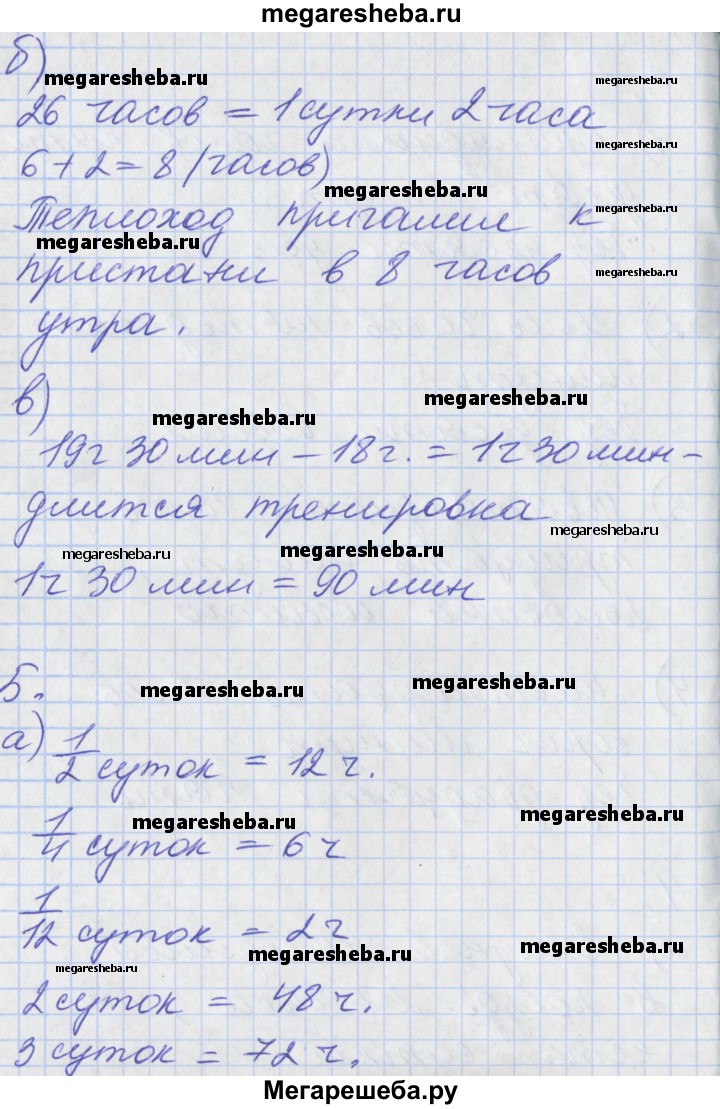 megaresheba.ru
б)
megaresheba.ru
megaresheba.ru
26 часов = 1 сутки 2 часа
megaresheba.ru
6 + 2 = 8 (часов)
megaresheba.ru
Теплоход причалил к
megaresheba.ru
megaresheba.ru
пристани в 8 часов
megaresheba.ru
утра.
в)
megaresheba.ru
megaresheba.ru
19ч 30 мин – 18ч. = 1ч 30 мин –
длится тренировка
megaresheba.ru
megaresheba.ru
megaresheba.ru
1ч 30 мин = 90 мин
5.
megaresheba.ru
megaresheba.ru
а) 1/2 суток = 12 ч.
megaresheba.ru
megaresheba.ru
1/4 суток = 6 ч
1/12 суток = 2 ч
megaresheba.ru
megaresheba.ru
megaresheba.ru
2 суток = 48 ч.
3 суток = 72 ч.
Мегарешеба.ру